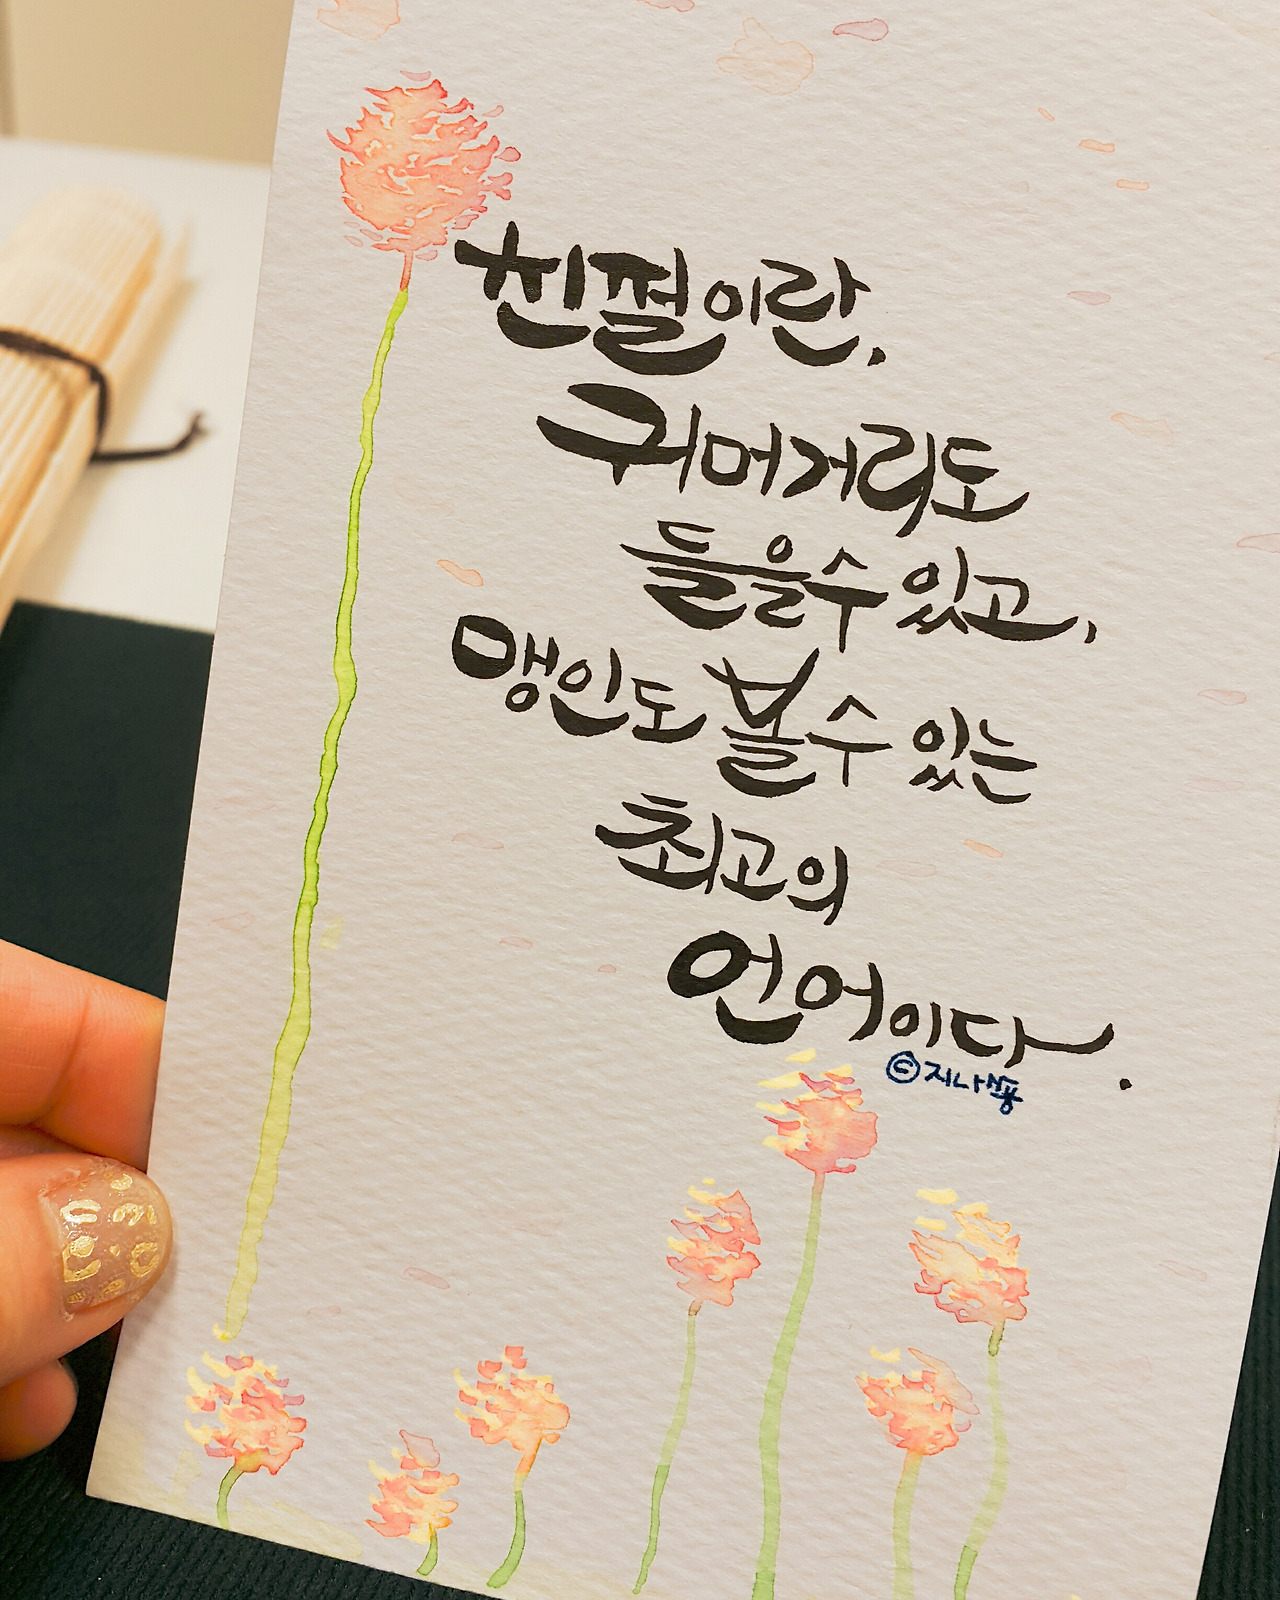 친절이란,
귀머거리도
들을수 있고,
맹인도 볼수 있는
최고의
언어이다.